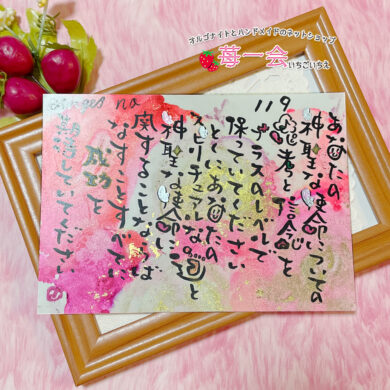 オルゴナイトとハンドメイドのネットショップ
苺一会
いちごいちえ
119
あなたの
神聖な使命についての
思考と信念を
プラスのレベルで
保っていてください
あなたの
スピリチュアルな道と
神聖な使命に
することならば
なすことすべてに
成功を
期待していてください